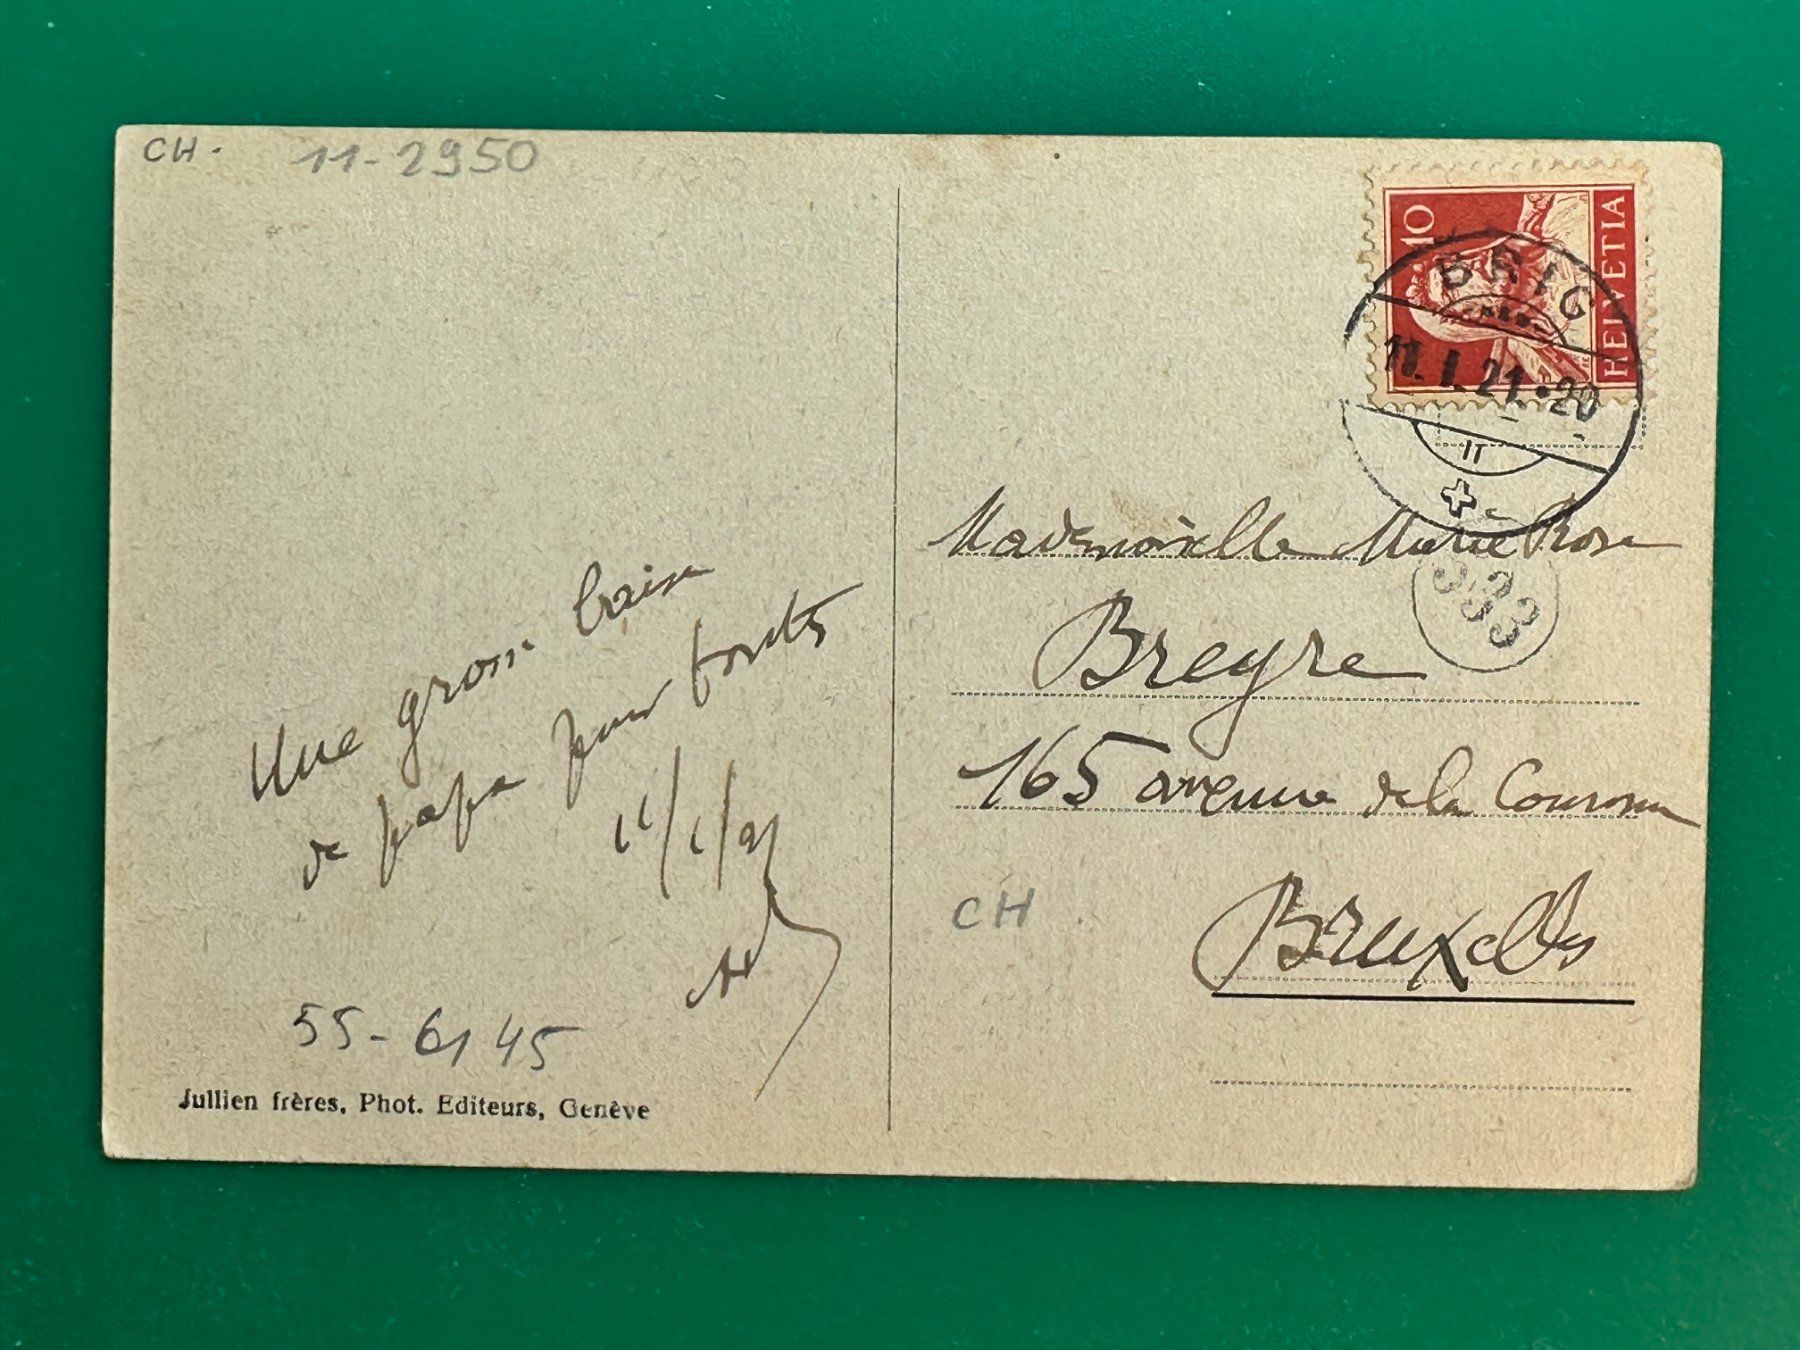 CH.
11-2950
10
HELVETIA
BRIG
11.I.21.•20
Mademoiselle Marie Rose
Breyre
165 avenue de la Couronne
Bruxelles
933
CH
Une grosse baise
de papa pour toutes
11/1/21
55-6145
Jullien frères, Phot. Editeurs, Genève